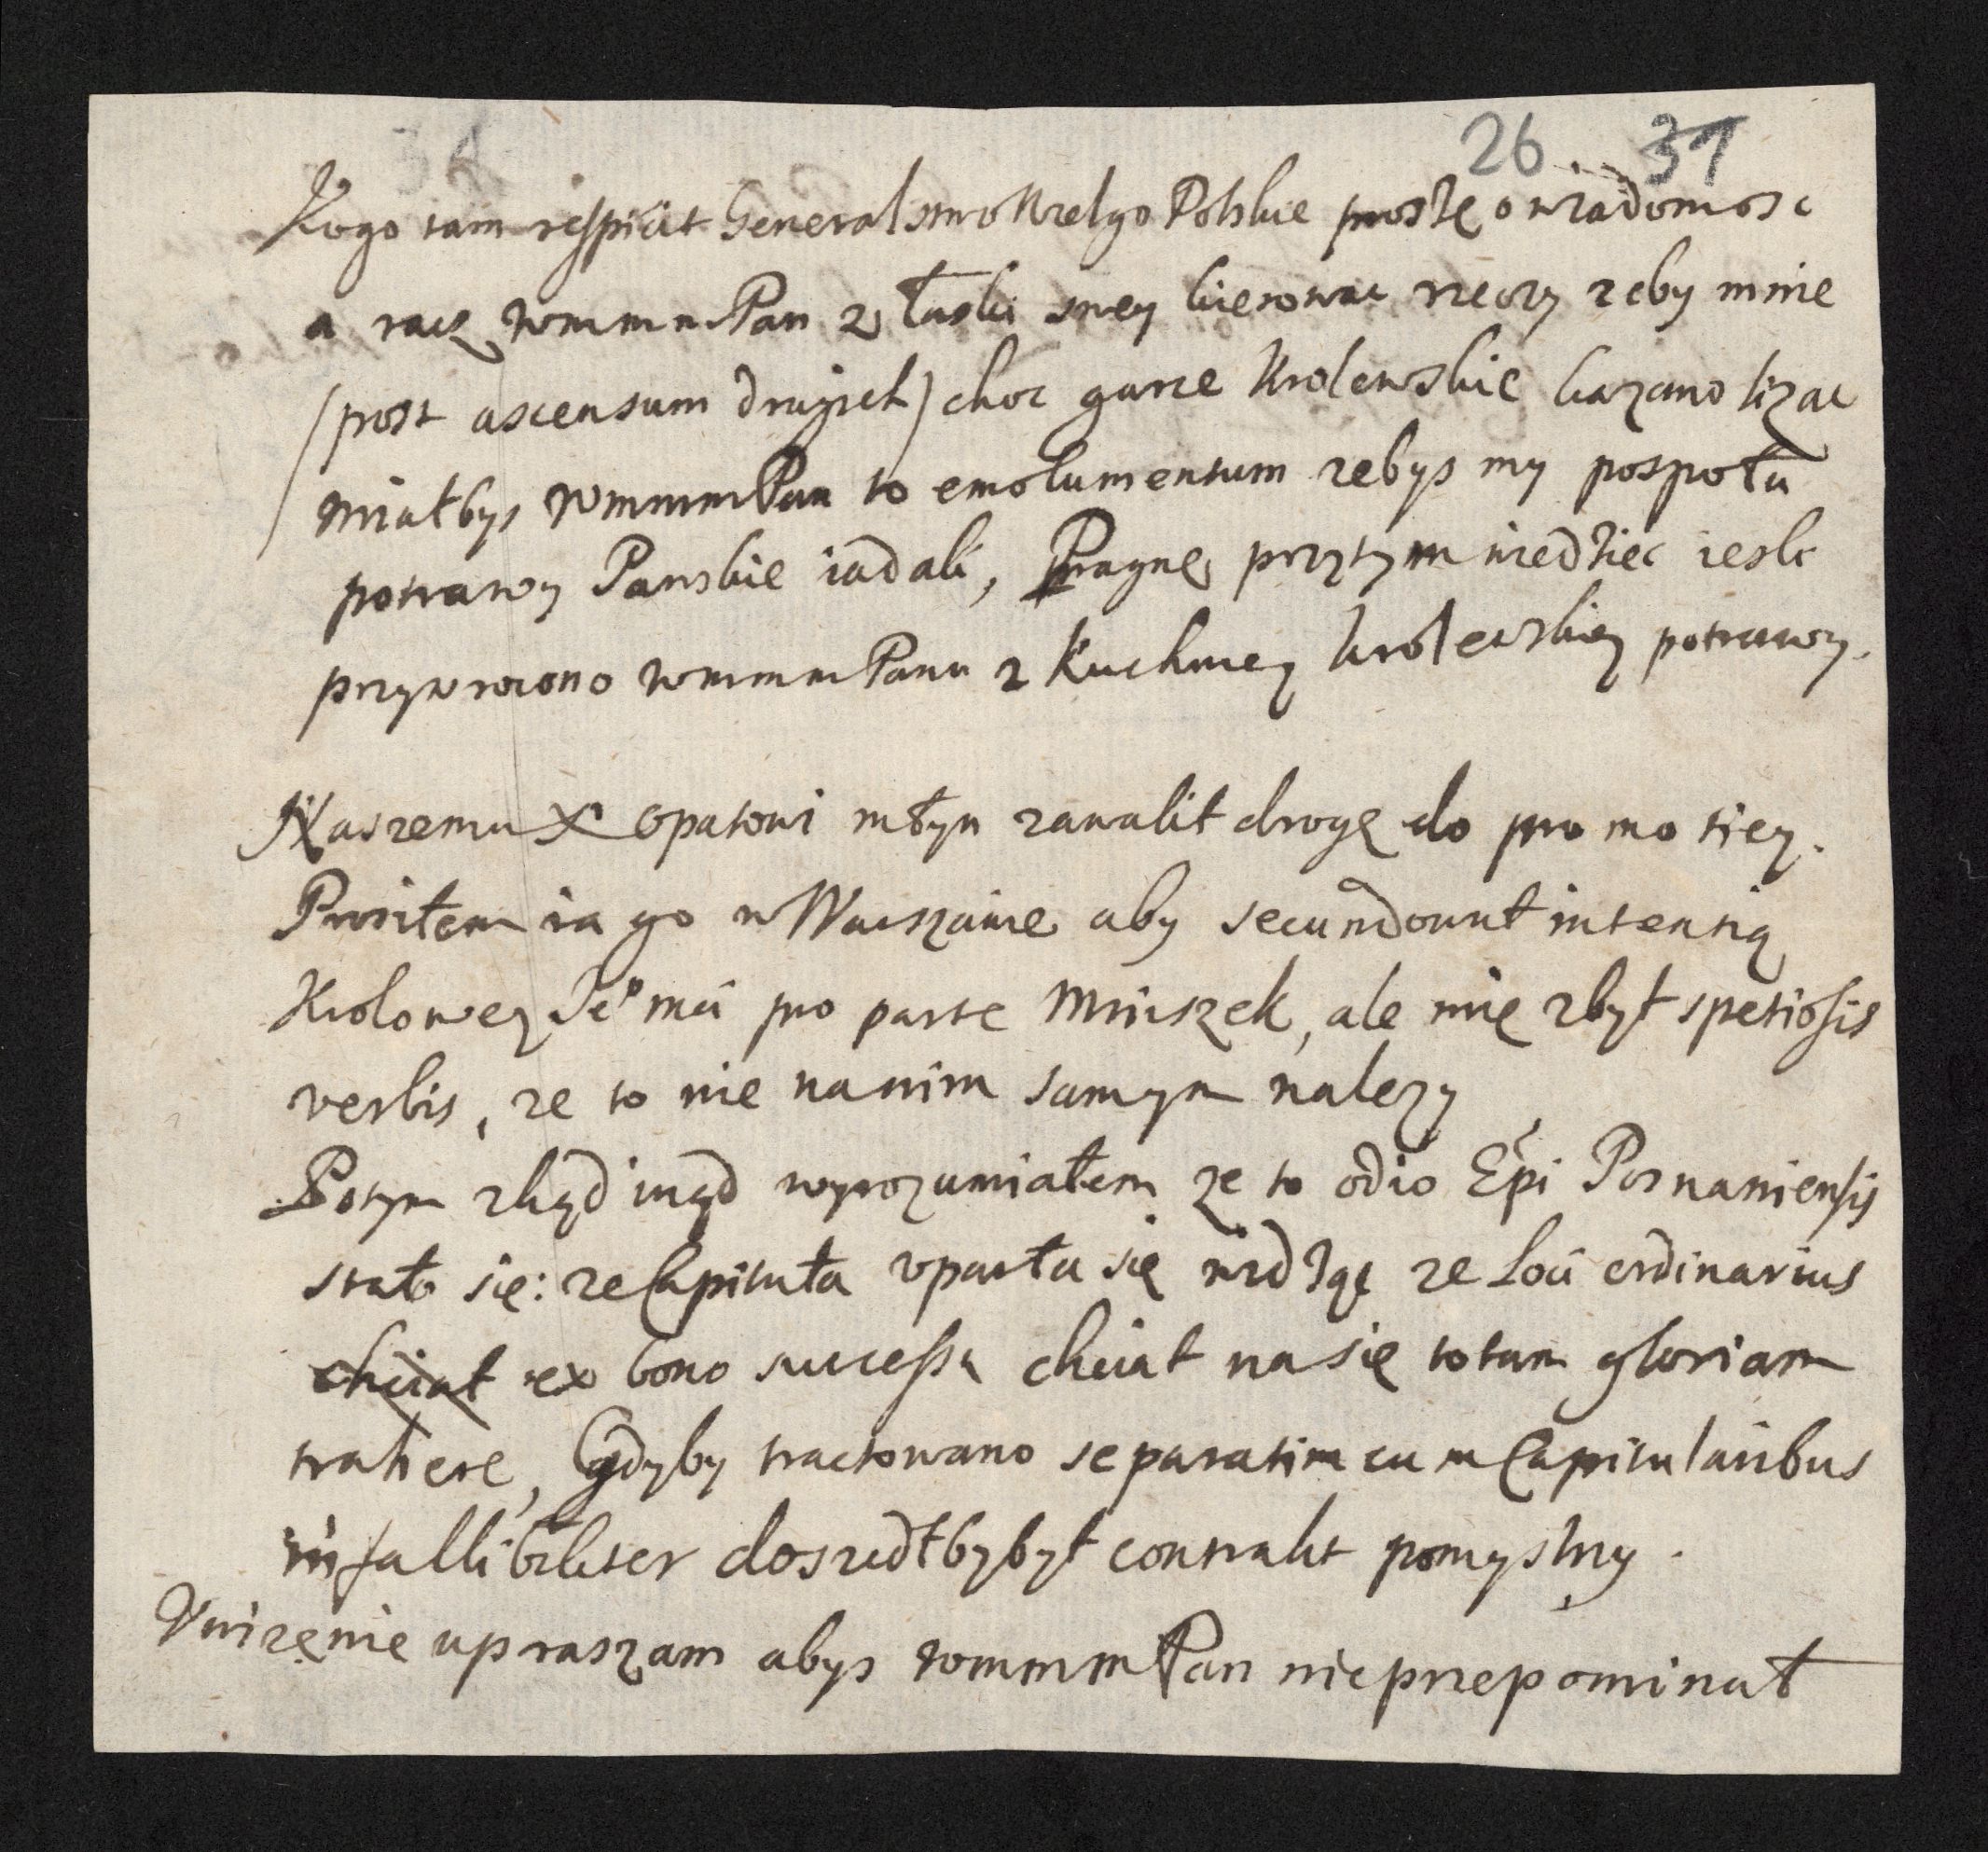 26 31
Kogo tam respicit Generalstwo Wielgo Polskie proszę o wiadomosc
a racz wmmmPan z łaski swey kierowac rzeczy zeby mnie
(post ascensum drugich) choc garce Krolewskie kazano lizac
miałbys wmmmPan to emolumentum zebys my pospołu
potrawy Panskie iadali, Pragnę przytym wiedziec iesli
przywrocono wmmmPanu z Kuchniey krolewskiey potrawy.
Naszemu X Opatowi młyn zawalił drogę do promotiey.
Prosiłem ia go w Warszawie aby secundował intentią
Krolowey Je° mći pro parte Mniszek, ale mię zbył spetiosis
verbis, ze to nie na nim samym nalezy
Potym zkąd inąd wyrozumiałem ze to odio Epi Posnaniensis
stało się: ze Capituła uparła się widząc ze Loci ordinarius
chciał ex bono successu chciał na się totam gloriam
trahere, Gdyby tractowano separatim cum Capitularibus
infallibiliter doszedłby był contrakt pomyslny.
Unizęnie upraszam abys wmmmPan nieprzepominał